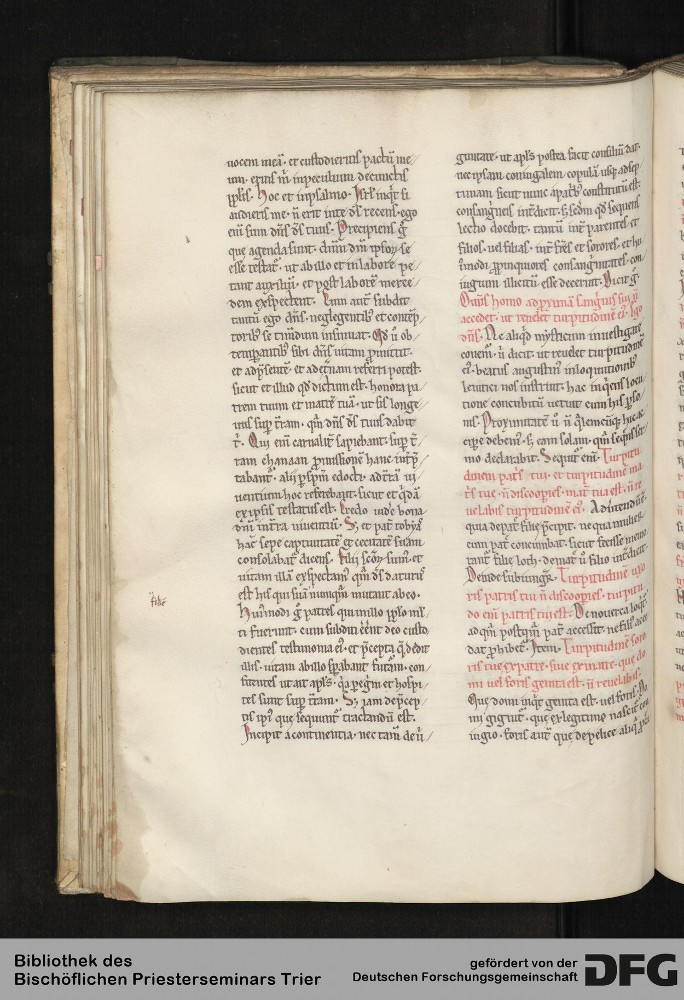 uocem meā · et custodieritis pactū me
um · eritis m̄ in peculium de cunctis
pplīs · Hoc et in psalmo · Isrl̄ inqͥt si
audieris me · n̄ erit in te ds̄ recens · ego
eni sum dn̄s ds̄ tuus · Precipiens g̊
que agenda sunt · dn̄m dn̄m ipsoꝝ se
esse testat᷑ · ut ab illo et in labore pe
tant auxiliū · et post laborē merce
dem exspectent · Cum aut̄ subdit
tantū ego dn̄s · neglegentibꝰ et contēp
toribꝰ se tim̄dum insinuat · Qd̄ ū ob
temꝑantibꝰ sibi dn̄s uitam ꝓmittit ·
et ad p̄sentē · et ad et̄nam referri potest ·
sicut et illud qd̄ dictum est · honora pa
trem tuum et matrē tuā · ut sis longe
uus suꝑ t̄ram · qm̄ dn̄s ds̄ tuus dabit
t̄ · Qui eni carnalit̄ sapiebant · suꝑ t̄
ram chanaan ꝓmissionē hanc int̄p̄
tabant᷑ · alii ꝑ sp̄m edocti · ad t̄rā ui
uentium hoc referebant · sicut et qͥdā
ex ipsis testatus est · Credo uidē bona
dn̄i in t̄ra uiuentiū · S; et pat̄ tobyas
hac sepe captiuitatē et cecitatē suam
consolabat᷑ dicens · Filii sc̄oꝝ sumꝰ · et
uitam illā exspectamꝰ qm̄ ds̄ daturus
est his qui fidē suā nunqm̄ mutant ab eo ·
Huiꝰmodi g̊ patres qui in illo pplo mł
ti fuerunt · cum subditi eēnt deo custo
dientes testimonia eiꝰ · et p̄cepta q̄ dedit
illis · uitam ab illo sꝑabant futurā · con
fitentes ut ait apl̄s · qa peg̊ni et hospi
tes sunt suꝑ t̄ram · S; iam de p̄cep
tis ipīs que sequunt᷑ tractandū est ·
Incipit a continentia · nec tam̄ de ū
fidē
ginitate · ut apl̄s postea facit consiliū dat ·
nec ipsam coniugalem copulā usq; adsep
timam sicut nunc a patribꝰ constitutū est ·
consanguineis int̄dicit · s; sc̄dm qd̄ sequens
lectio docebit · tantū int̄ parentes et
filios · uel filias · int̄ fr̄es et sorores · et hu
iꝰmodi ꝓpinquiores consanguinitates · con
iugium illicitū esse decernit · Dicit g̊ ·
Omīs homo ad ꝓximā sanguis sui n̄
accedet · ut reuelet turpitudinē eiꝰ · Ego
dn̄s · Ne aliqͥd mysticum inuestigare
conem᷑ · ū dicit · ut reuelet turpitudinē
eiꝰ · beatus augustinꝰ in loqutionibꝰ
leuitici nos instruit · hac inqͥens locu
tione concubitū uetuit cum his pꝰso
nis · Proximitatē ū n̄ q̄lemcūq; hic ac
cipe debemꝰ · s; eam solam · quā sequens ser
mo declarabit · Sequit᷑ eni · Turpitu
dinem patris tui · et turpitudinē ma
tris tue · n̄ discooꝑies · mat̄ tua est · n̄ re
uelabis turpitudinē eiꝰ · Adtendendū ē ·
quia de patre filie p̄cipit · ne qua mulier
cum patre concumbat · sicut fecisse memo
rant᷑ filie loth · de mat̄ ū filio int̄dicit ·
Deinde subiungit᷑ · Turpitudinē uxo
ris patris tui n̄ discooꝑies · turpitu
do eni patris tui est · De nouerca loqͥt᷑ ·
ad qm̄ postqm̄ pat̄ accessit · ne filiꝰ acce
dat ꝓhibet᷑ · Item · Turpitudinē soro
ris tue ex patre · siue ex matre · que do
mi uel foris genita est · n̄ reuelabis ·
Que domi inqͥt genita est · uel foris · Do
mi gignit᷑ · que ex legitimo nascit᷑ con
iugio · foris aut̄ que de pelice aliqͣ
Bibliothek des
Bischöflichen Priesterseminars Trier
gefördert von der
Deutschen Forschungsgemeinschaft
DFG